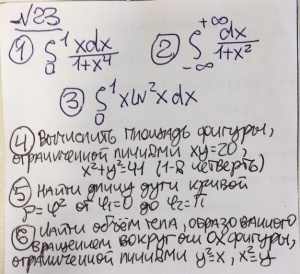 №23
① ∫₀¹ xdx/(1+x⁴) ② ∫₋∞⁺∞ dx/(1+x²)
③ ∫₀¹ x ln²x dx
④ Вычислить площадь фигуры,
ограниченной линиями xy=20,
x²+y²=41 (1-я четверть)
⑤ Найти длину дуги кривой
ρ=φ² от φ₁=0 до φ₂=π
⑥ Найти объём тела, образованного
вращением вокруг оси OX фигуры,
ограниченной линиями y²=x, x²=y